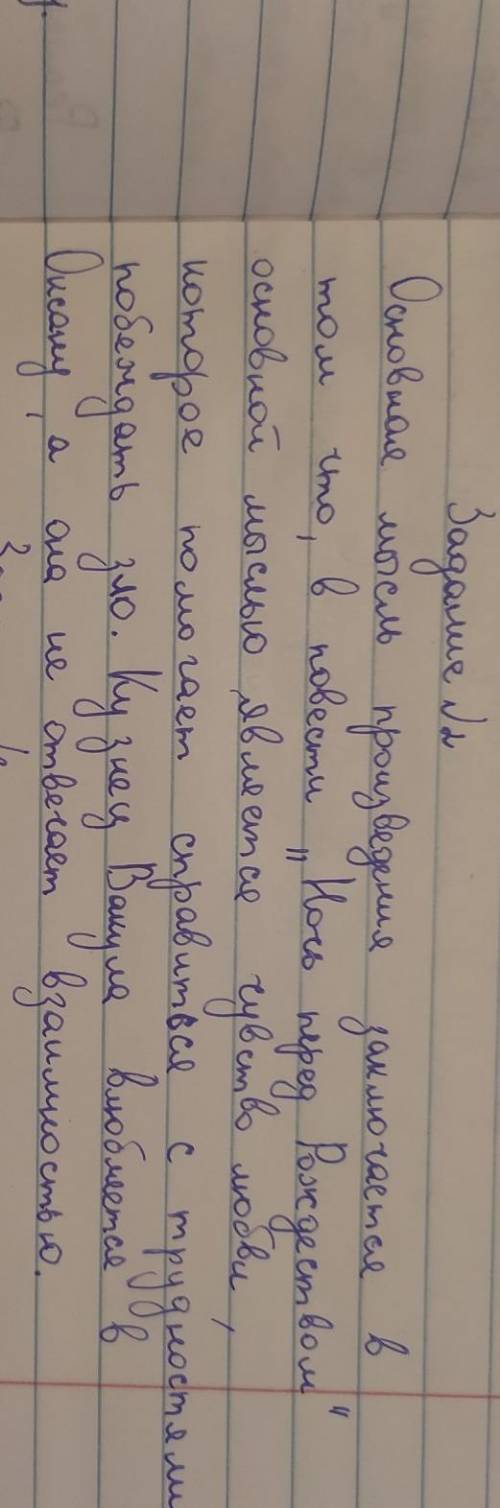 Задание №2
Основная мысль произведения заключается в
том что, в повести "Ночь перед Рождеством"
основной мыслью является чувство любви,
которое помогает справиться с трудностями
побеждать зло. Кузнец Вакула влюбляется в
Оксану, а она не отвечает взаимностью.